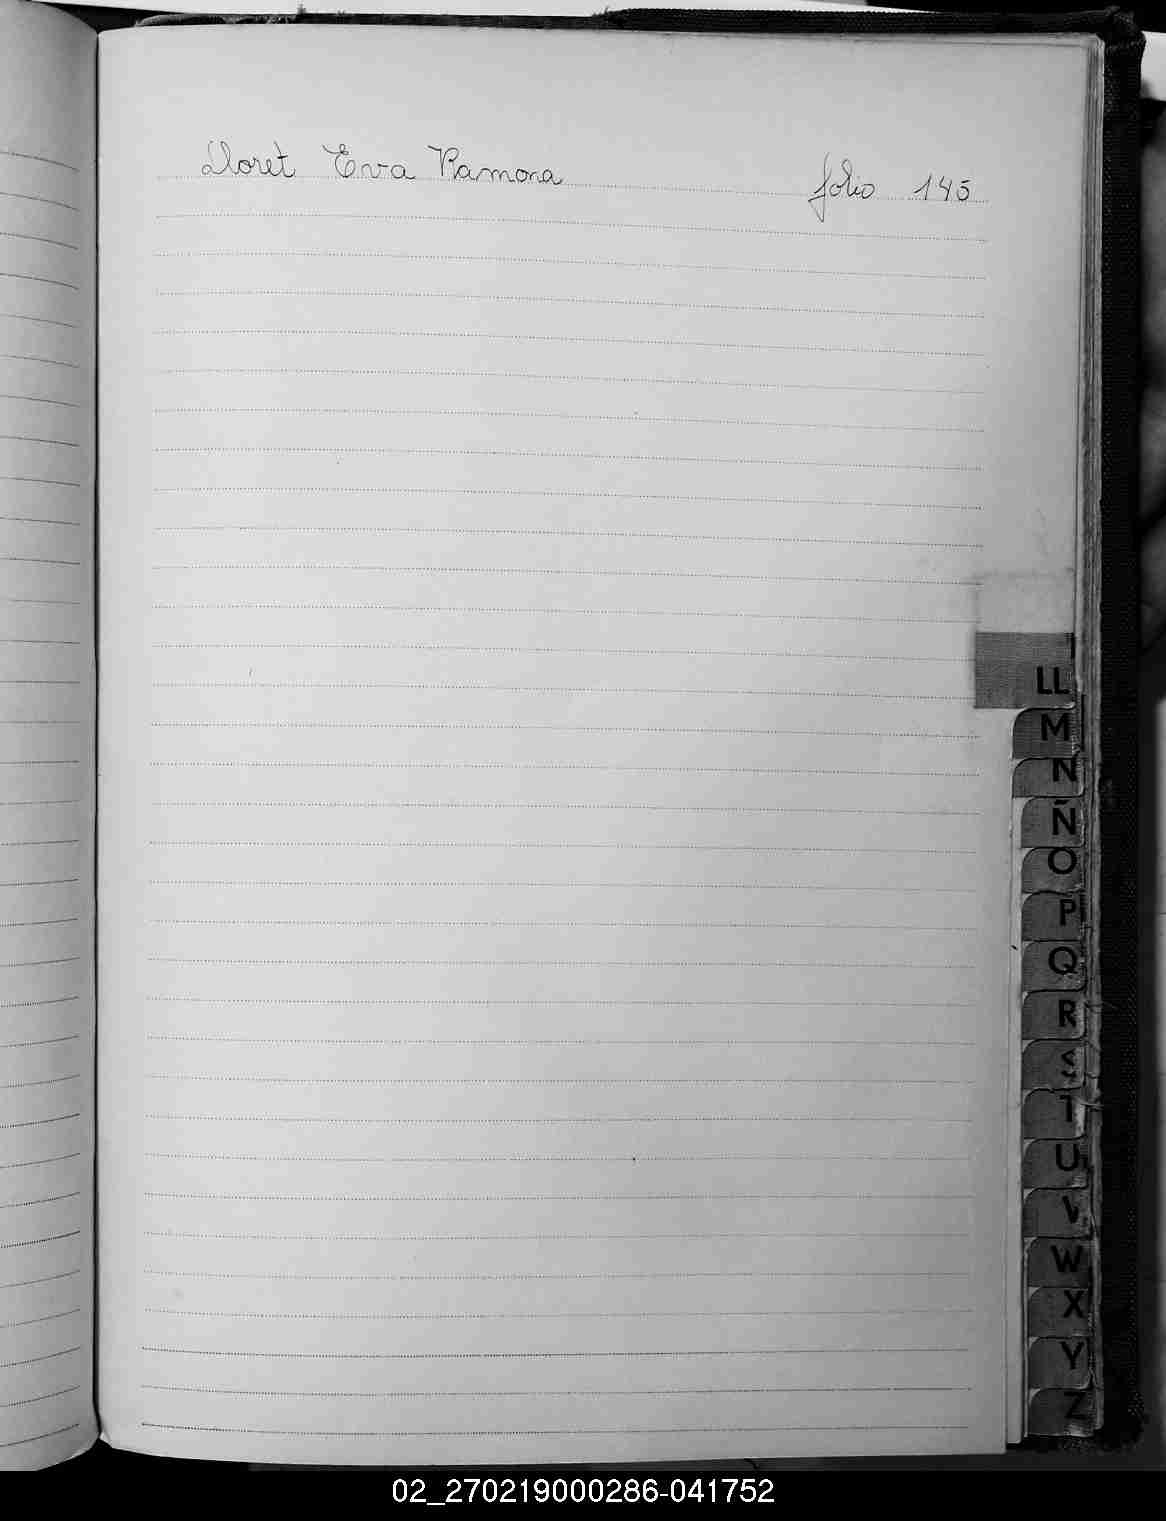 Lloret Eva Ramona folio 145
LL
M
N
Ñ
O
P
Q
R
S
T
U
V
W
X
Y
Z
02_270219000286-041752